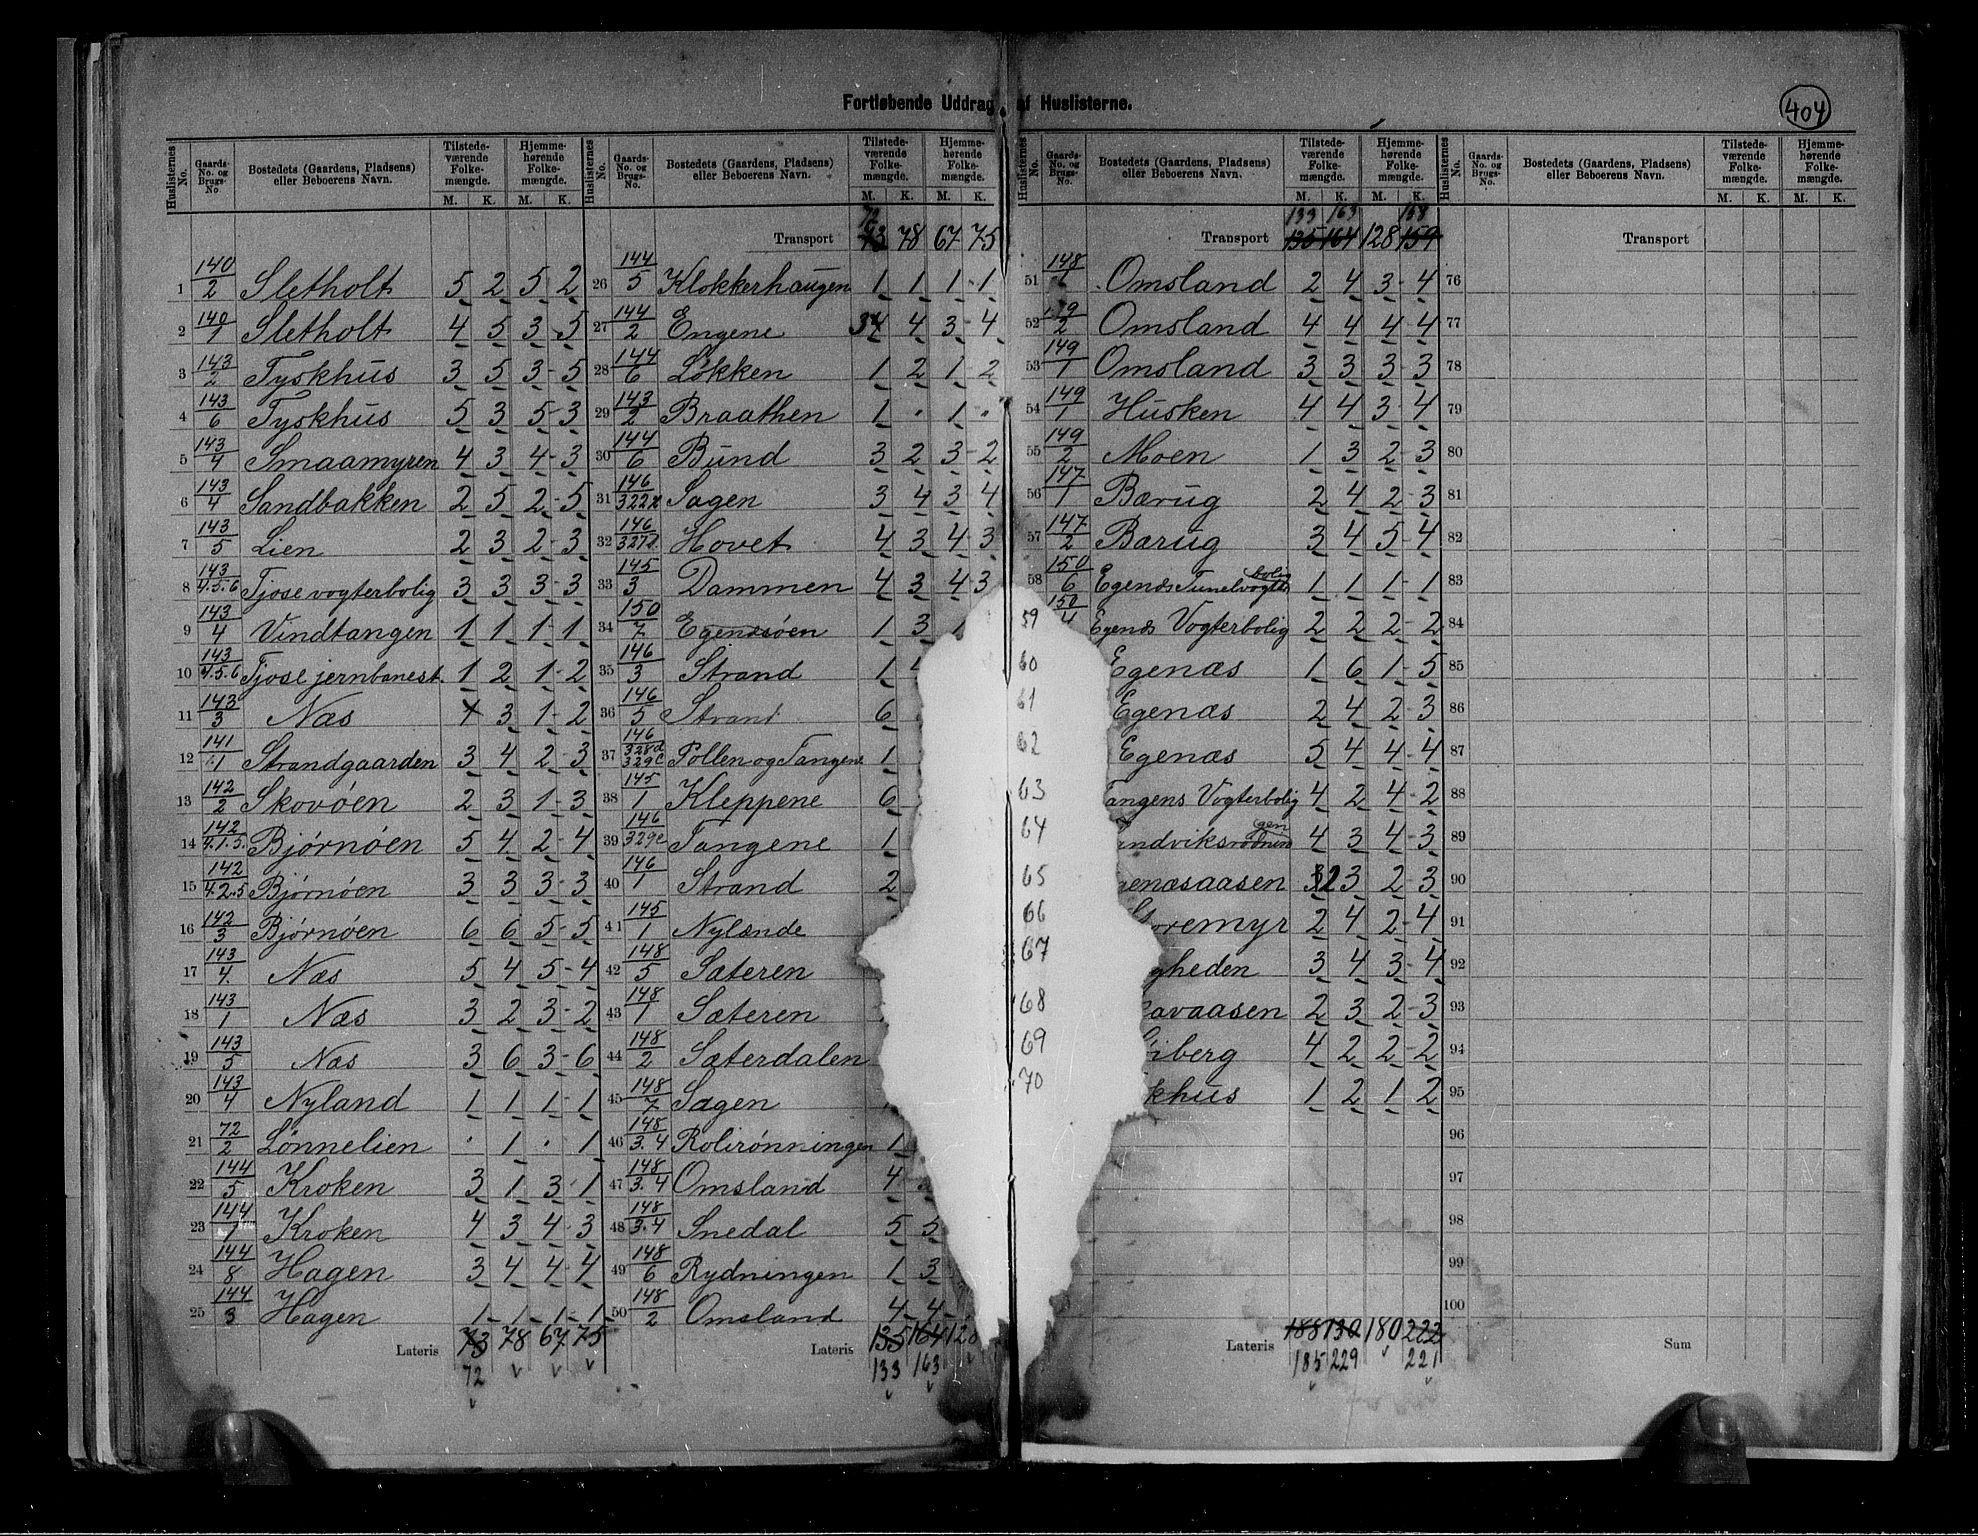 Fortløbende Uddrag af Huslisterne.
404
Huslisternes No. | Gaards-No. og Brugs-No. | Bostedets (Gaardens, Pladsens) eller Beboerens Navn. | Tilstedeværende Folkemængde. M. K. | Hjemmehørende Folkemængde. M. K.
1 140/2 Sletholt 5 2 5 2
2 140/1 Sletholt 4 5 3 5
3 143/2 Tyskhus 3 5 3 5
4 143/6 Tyskhus 5 3 5 3
5 143/4 Smaamyren 4 3 4 3
6 143/4 Sandbakken 2 5 2 5
7 143/5 Lien 2 3 2 3
8 143/4.5.6 Tjose vogterbolig 3 3 3 3
9 143/4 Vindtangen 1 1 1 1
10 143/4.5.6 Tjose jernbanest. 1 2 1 2
11 143/3 Næs 3 1 2
12 141/1 Strandgaarden 3 4 2 3
13 142/2 Skovöen 2 3 1 3
14 142/4.1.3. Bjørnøen 5 4 2 4
15 142/4.2.5 Bjørnøen 3 3 3 3
16 142/3 Bjørnøen 6 6 5 5
17 143/4. Næs 5 4 5 4
18 143/1 Næs 3 2 3 2
19 143/5 Næs 3 6 3 6
20 143/4 Nyland 1 1 1 1
21 72/2 Lønnelien . 1 . 1
22 144/5 Kroken 3 1 3 1
23 144/1 Kroken 4 3 4 3
24 144/8 Hagen 3 4 4 4
25 144/3 Hagen 1 1 1 1
Lateris 73 78 67 75
72
Huslisternes No. | Gaards-No. og Brugs-No. | Bostedets (Gaardens, Pladsens) eller Beboerens Navn. | Tilstedeværende Folkemængde. M. K. | Hjemmehørende Folkemængde. M. K.
72
Transport 73 78 67 75
26 144/5 Klokkerhaugen 1 1 1 1
27 144/2 Engene 3 4 4 3 4
28 144/6 Løkken 1 2 1 2
29 143/2 Braathen 1 . 1 .
30 144/6 Bund 3 2 3 2
31 146 Sagen 3 4 3 4
32 146 Hovet 4 3 4 3
33 145/3 Dammen 4 3 4 3
34 150/7 Egenæsöen 1 3 1
35 146/3 Strand 1
36 146/5 Strand 6
37 146/328d 329c Pollen og Tangene 1
38 145/1 Kleppene 6
39 146/329c Tangene 1
40 146/1 Strand 2
41 145/1 Nylænde
42 148/5 Sæteren
43 148/1 Sæteren
44 148/2 Sæterdalen
45 148/7 Sagen
46 148/3.4 Rolirönningen 1
47 148/3.4 Omsland 4
48 148/3.4 Snedal 5 5
49 148/6 Rydningen 1 3
50 148/2 Omsland 4 4
Lateris 135 164 128
133 163
Huslisternes No. | Gaards-No. og Brugs-No. | Bostedets (Gaardens, Pladsens) eller Beboerens Navn. | Tilstedeværende Folkemængde. M. K. | Hjemmehørende Folkemængde. M. K.
133 163 158
Transport 135 164 128 159
51 148 Omsland 2 4 3 4
52 149/2 Omsland 4 4 4 4
53 149/1 Omsland 3 3 3 3
54 149/1 Husken 4 4 3 4
55 149/2 Moen 1 3 2 3
56 147/1 Bærug 2 4 2 3
57 147/2 Bærug 3 4 5 4
58 150/6 Egenæs Tunelvogterbolig 1 1 1 1
59 150/4 Egenæs Vogterbolig 2 2 2 2
60 Egenæs 1 6 1 5
61 Egenæs 2 4 2 3
62 Egenæs 5 4 4 4
63 Tangens Vogterbolig 4 2 4 2
64 4 3 4 3
65 enæsaasen 2 3 2 3
66 Storemyr 2 4 2 4
67 gheden 3 4 3 4
68 avaasen 2 3 2 3
69 iberg 4 2 2 2
70 khus 1 2 1 2
Lateris 188 130 180 222
185 229 221
Huslisternes No. | Gaards-No. og Brugs-No. | Bostedets (Gaardens, Pladsens) eller Beboerens Navn. | Tilstedeværende Folkemængde. M. K. | Hjemmehørende Folkemængde. M. K.
Transport
76
77
78
79
80
81
82
83
84
85
86
87
88
89
90
91
92
93
94
95
96
97
98
99
100
Sum